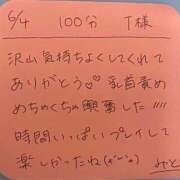 6/4 100分 T様
沢山気持ちよくしてくれて
ありがとう♡♡乳首責め
めちゃくちゃ興奮した!!!!
時間いっぱいプレイして
楽しかったね(*^^*)
みと